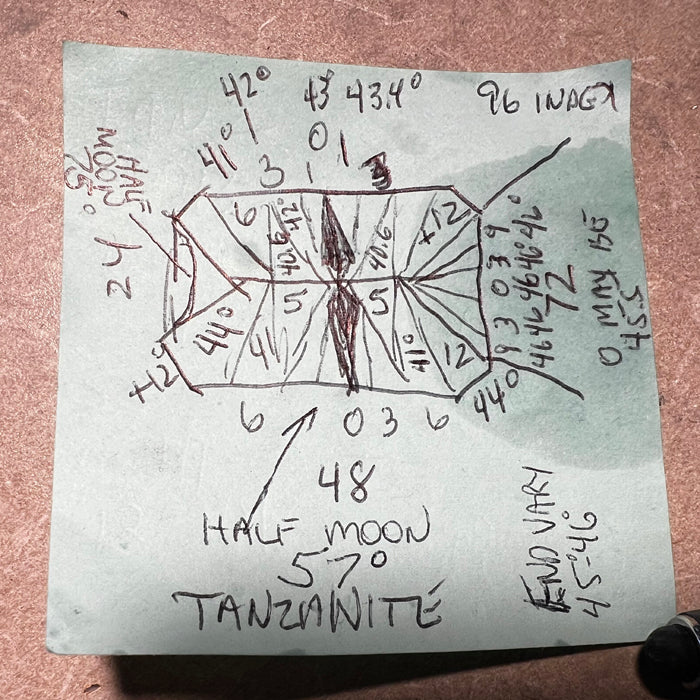 42° 43° 43.4° 96 INDEX
41° 1 0 1
3 1 3
HALF MOON 75°
6 42° +12
40.6 40.6
24
5 5
44° 4 41° 12
+12°
9 3 0 3 9
46 46 46 46° 46°
72
0 MAY BE
45.5
44°
6 0 3 6
48
HALF MOON
57°
TANZANITE
END VARY
45-46°